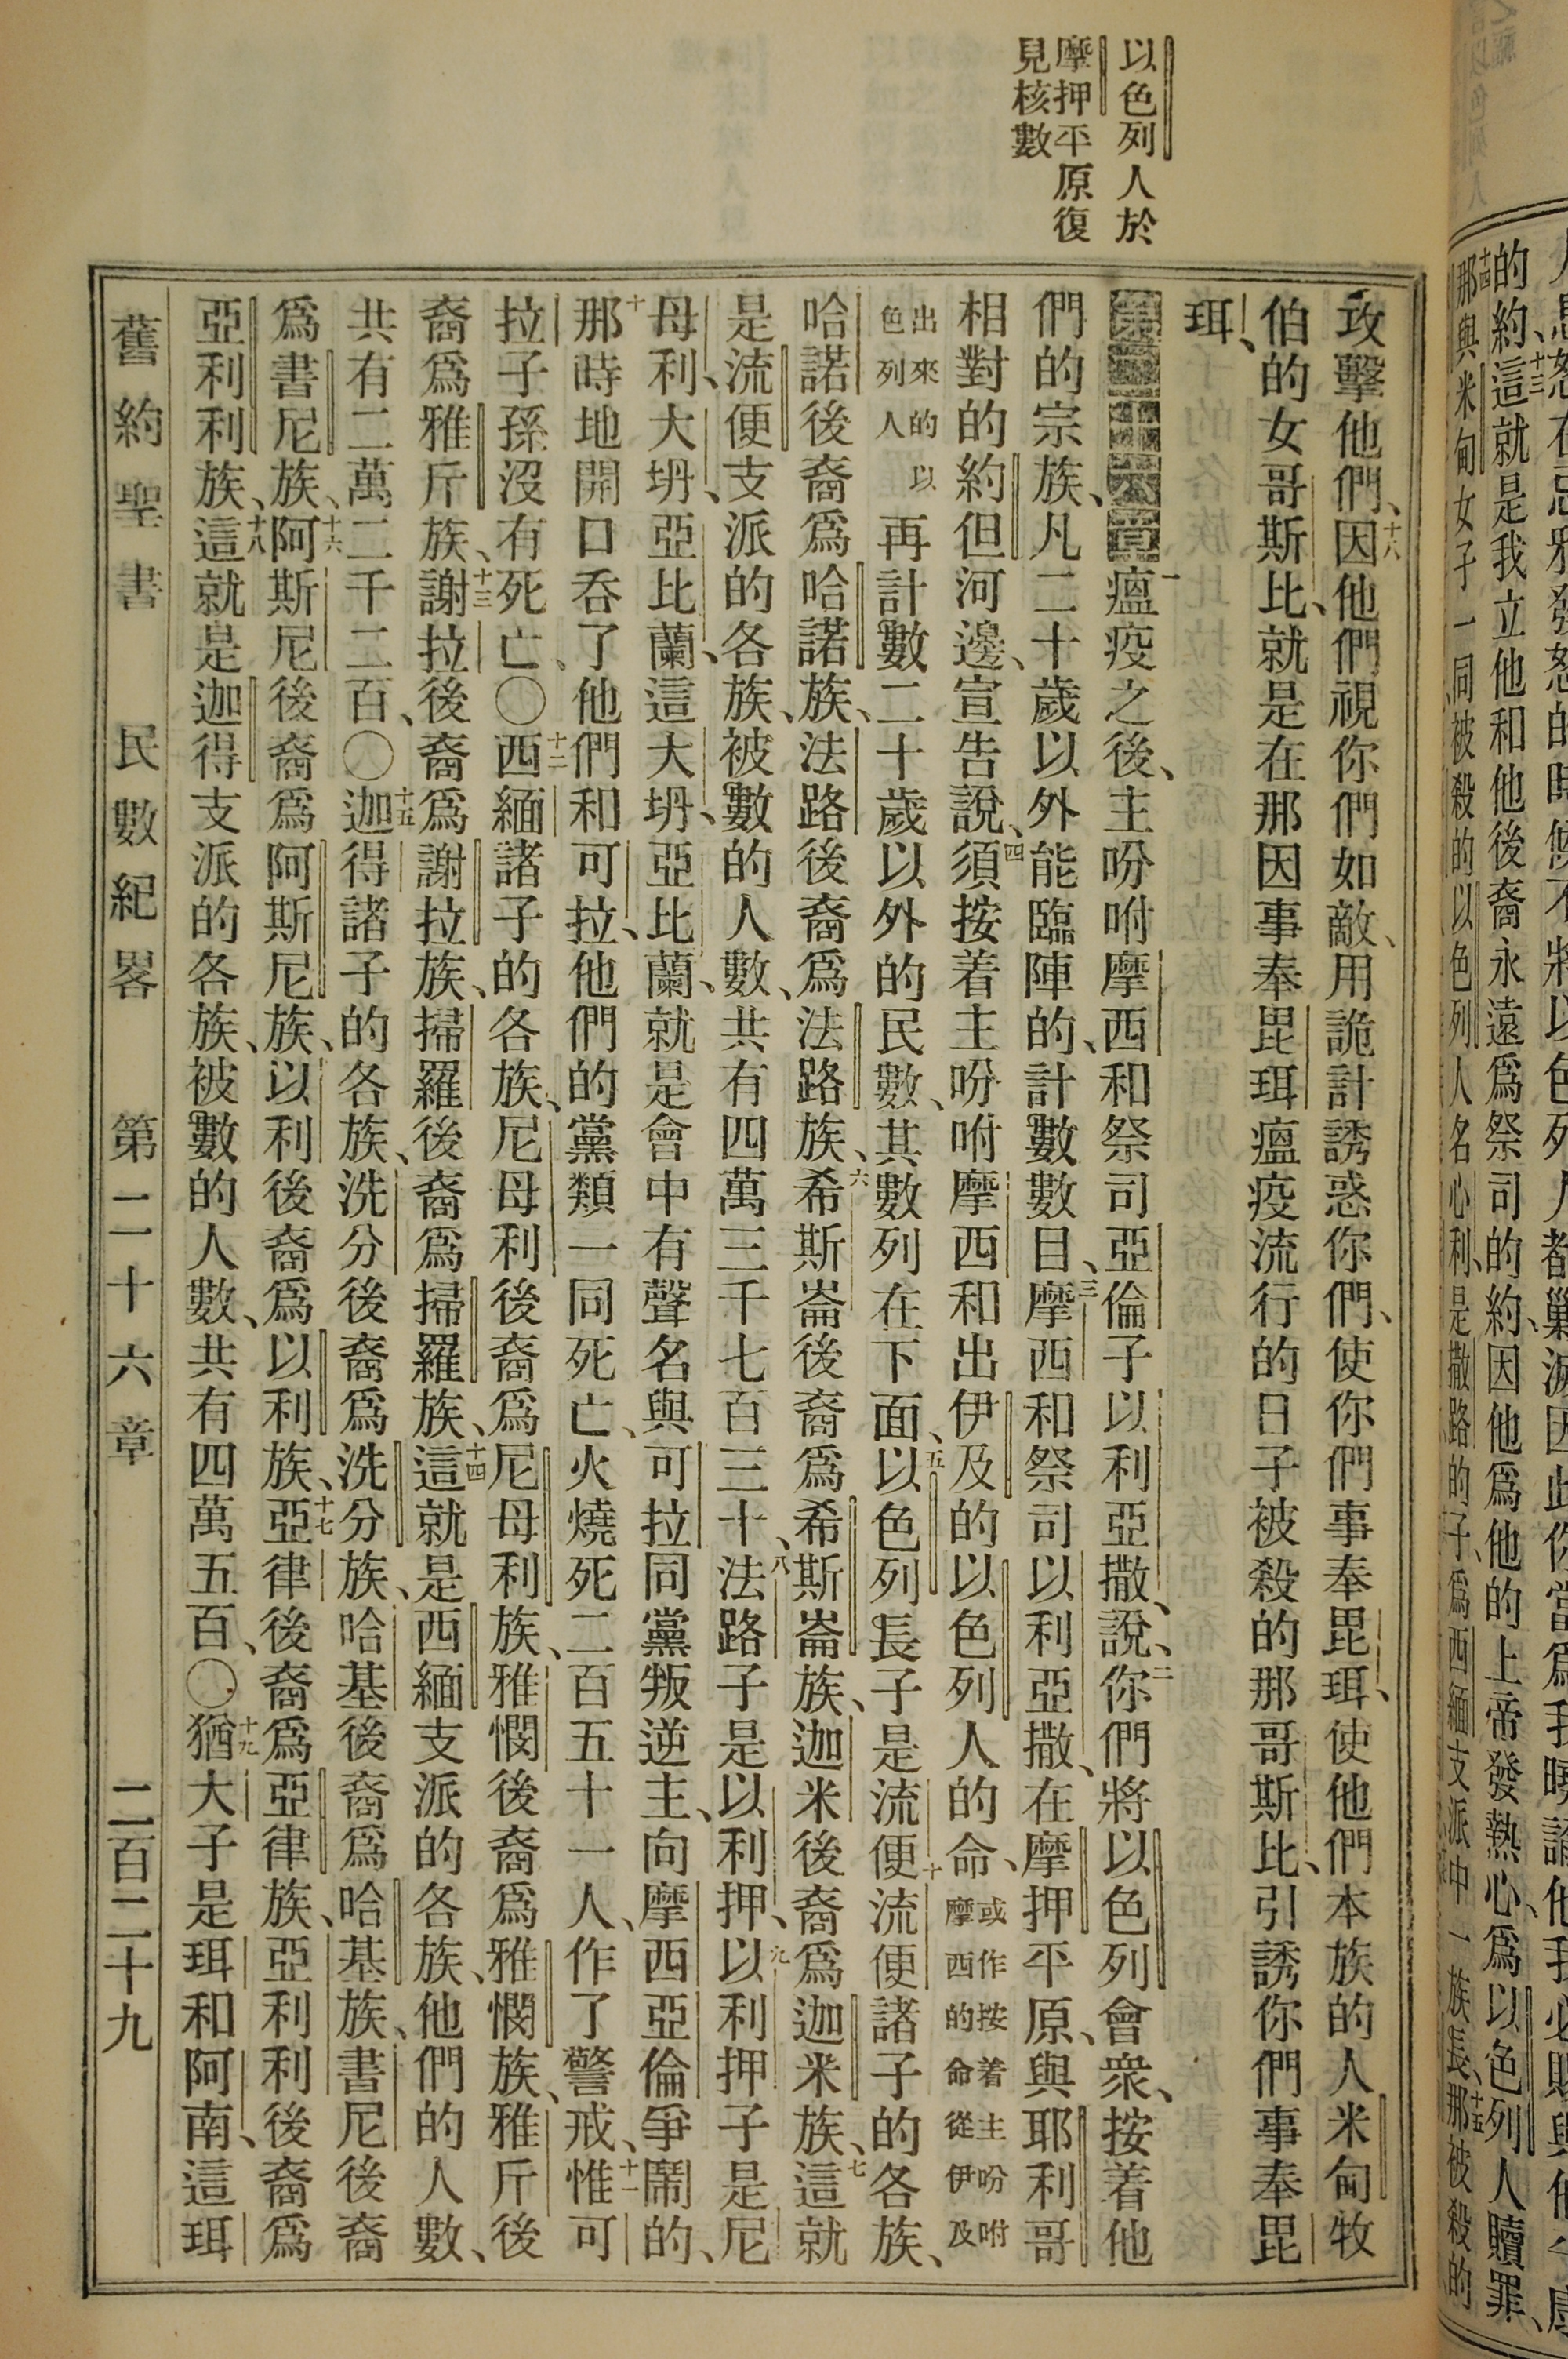 以色列人於
摩押平原復
見核數
攻擊他們、十八因他們視你們如敵、用詭計誘惑你們、使你們事奉毘珥、使他們本族的人米甸牧
伯的女哥斯比、就是在那因事奉毘珥瘟疫流行的日子被殺的那哥斯比、引誘你們事奉毘
珥、
第二十六章一瘟疫之後、主吩咐摩西和祭司亞倫子以利亞撒、說、二你們將以色列會衆、按着他
們的宗族、凡二十歲以外能臨陣的、計數數目、三摩西和祭司以利亞撒、在摩押平原、與耶利哥
相對的約但河邊、宣告說、四須按着主吩咐摩西和出伊及的以色列人的命、或作按着主吩咐摩西的命從伊及
出來的以色列人再計數二十歲以外的民數、其數列在下面、五以色列長子是流便十流便諸子的各族、
哈諾後裔爲哈諾族、法路後裔爲法路族、六希斯崙後裔爲希斯崙族、迦米後裔爲迦米族、七這就
是流便支派的各族、被數的人數、共有四萬三千七百三十、八法路子是以利押、九以利押子是尼
母利、大坍、亞比蘭、這大坍、亞比蘭、就是會中有聲名與可拉同黨叛逆主、向摩西亞倫爭鬧的、
十那時地開口吞了他們和可拉、他們的黨類一同死亡、火燒死二百五十一人、作了警戒、十一惟可
拉子孫沒有死亡、〇十二西緬諸子的各族、尼母利後裔爲尼母利族、雅憫後裔爲雅憫族、雅斤後
裔爲雅斤族、十三謝拉後裔爲謝拉族、掃羅後裔爲掃羅族、十四這就是西緬支派的各族、他們的人數、
共有二萬二千二百、〇十五迦得諸子的各族、洗分後裔爲洗分族、哈基後裔爲哈基族、書尼後裔
爲書尼族、十六阿斯尼後裔爲阿斯尼族、以利後裔爲以利族、十七亞律後裔爲亞律族、亞利利後裔爲
亞利利族、十八這就是迦得支派的各族、被數的人數、共有四萬五百、〇十九猶大子是珥和阿南、這珥
舊約聖書 民數紀畧 第二十六章 二百二十九
的約、十三這就是我立他和他後裔永遠爲祭司的約、因他爲他的上帝發熱心、爲以色列人贖罪、
十四那與米甸女子一同被殺的以色列人名心利、是撒路的子、爲西緬支派中一族長、十五那被殺的